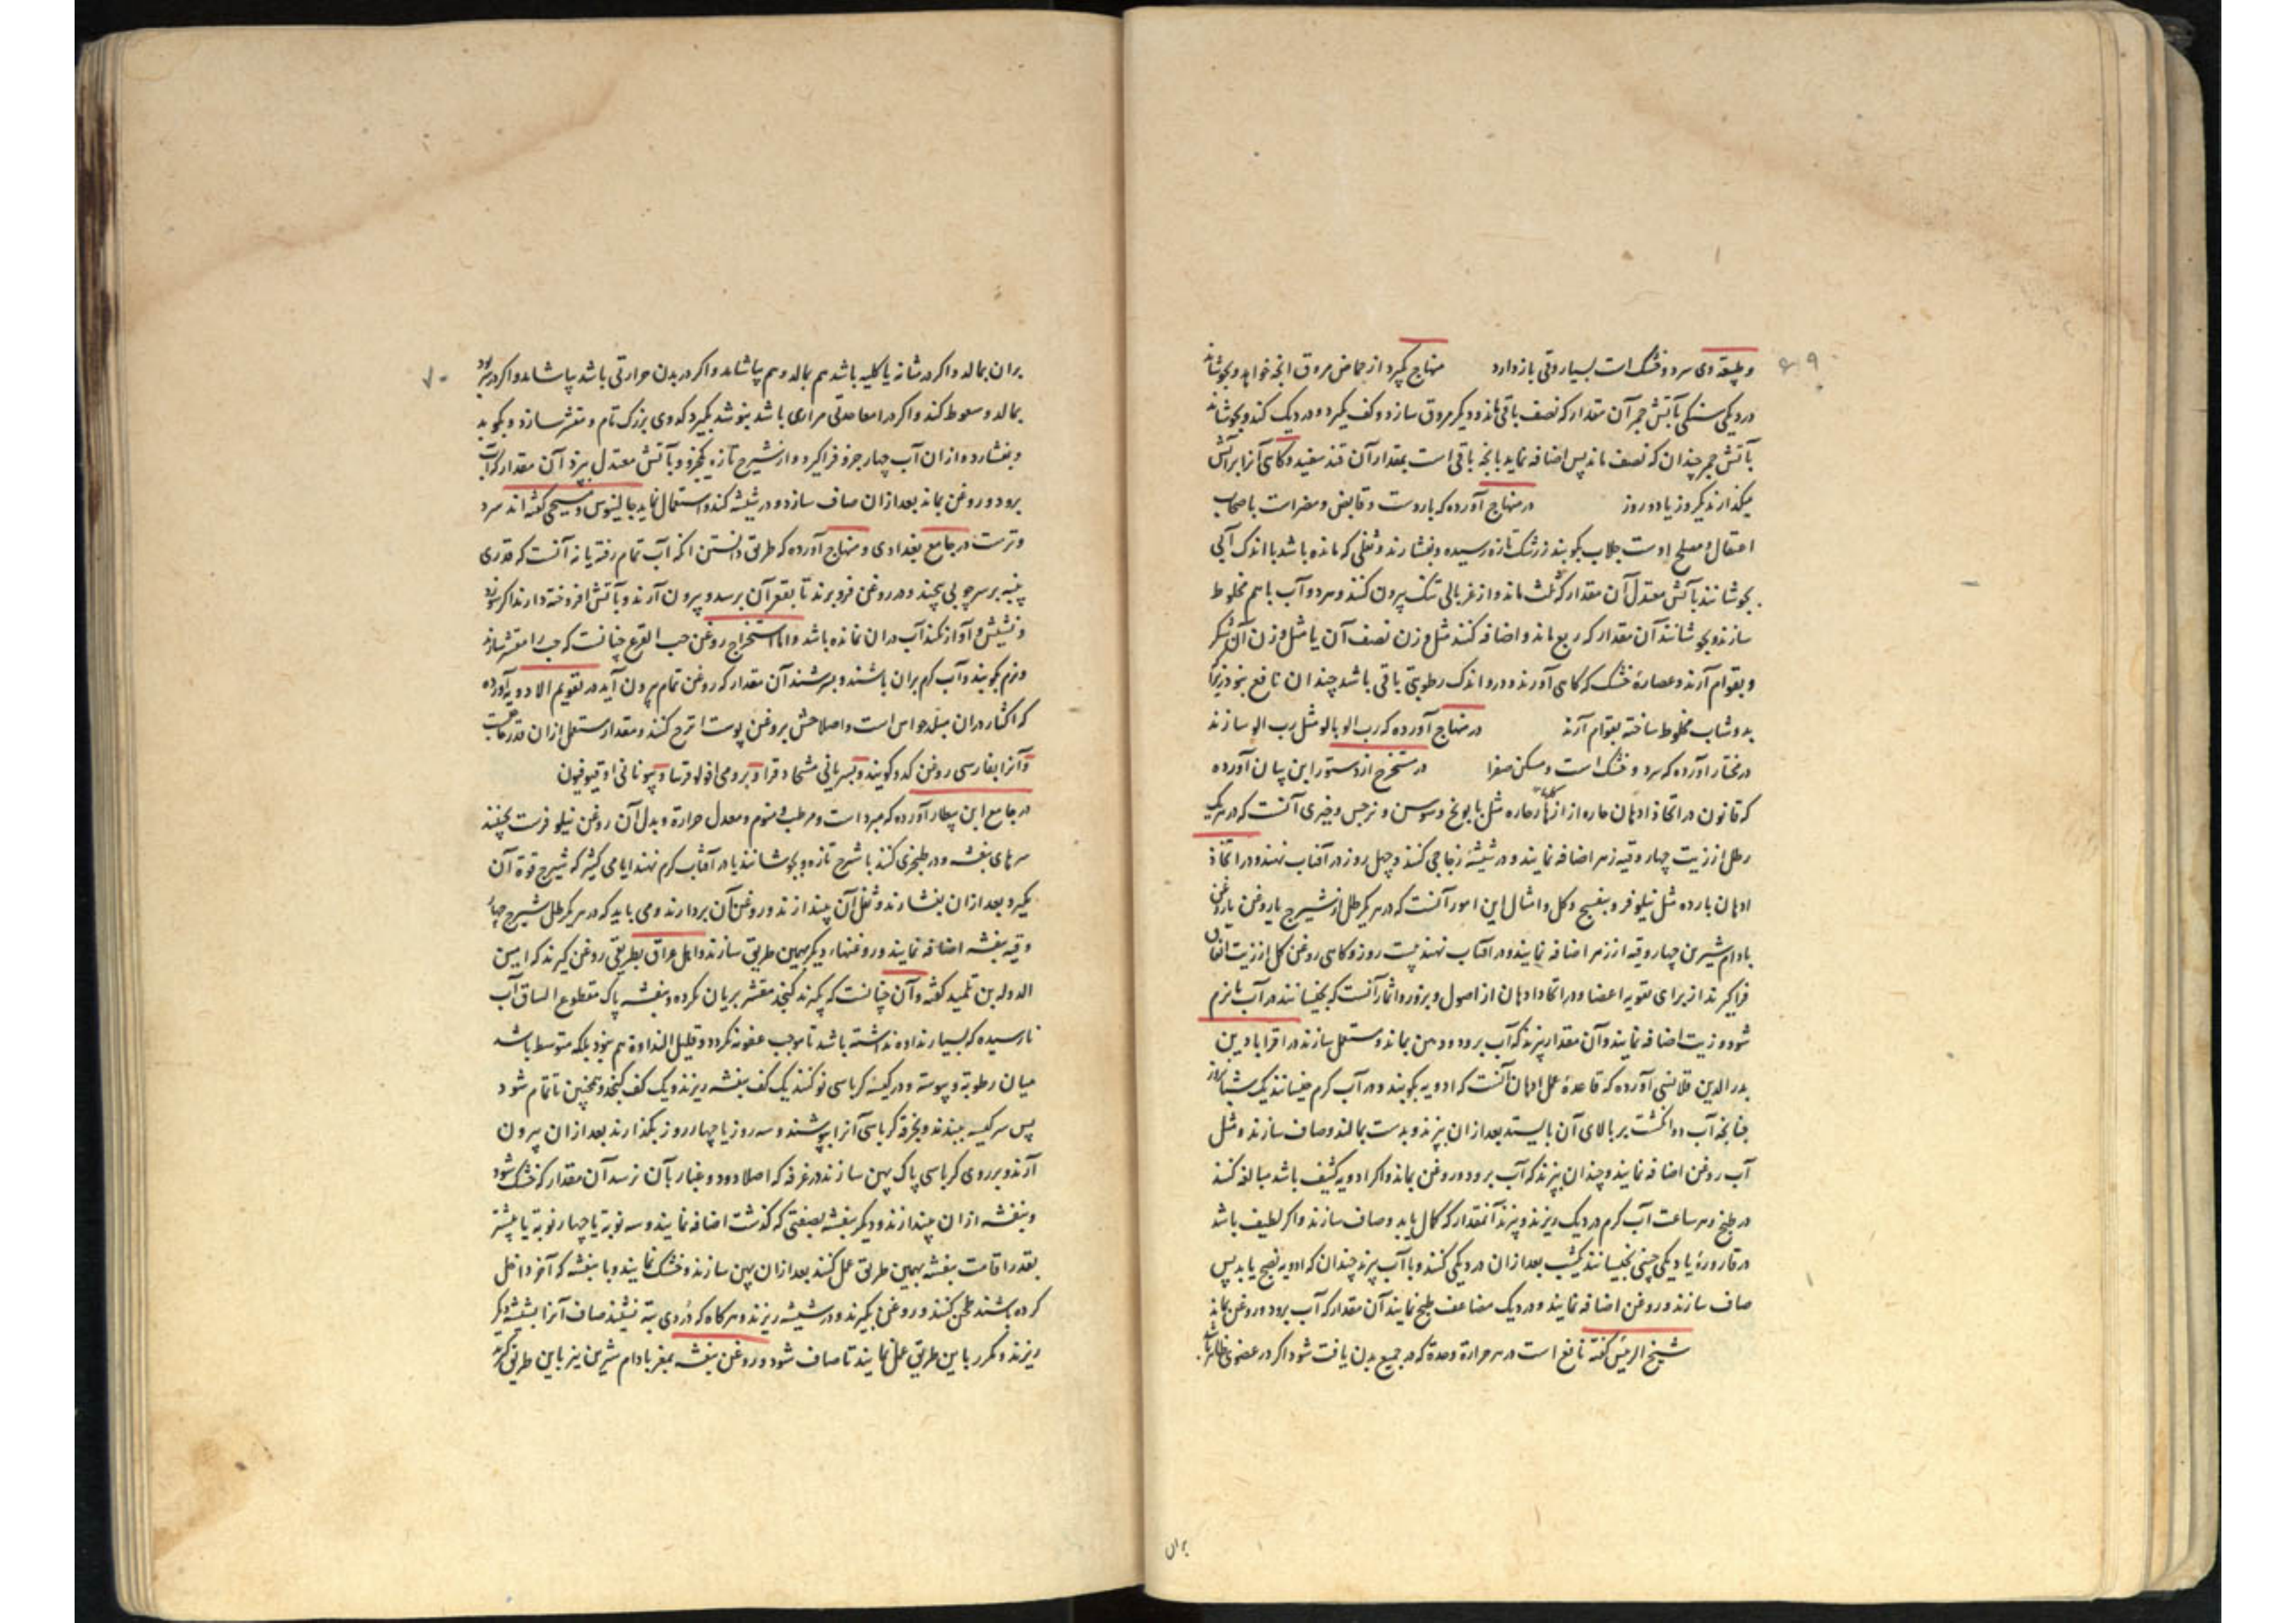 ۶۹
و طبیعة وی سرد و خشک است بسیار وقی باز دارد منهاج گیرد از حماض مروق انچه خواهد و بجوشاند
در دیکی سنکی بآتش جمر آن مقدار که نصف باقی ماند و دیکر مروق سازد و کف بگیرد و در دیک کند و بجوشاند
بآتش جمر چندان که نصف ماند پس اضافه نماید بانچه باقی است بمقدار آن قند سفید و کاهی آنرا بر آتش
میکذارند یکروز یا دو روز در منهاج آورده که باردست و قابض و مضر است باصحاب
اعتقال و مصلح اوست جلاب بکوبند زرشک تازه رسیده و بفشارند و ثفلی که مانده باشد با اندک آبی
بجوشانند بآتش معتدل آن مقدار که ثلث ماند و از غربالی تنک بیرون کنند و هر دو آب با هم مخلوط
سازند و بجوشانند آن مقدار که ربع ماند و اضافه کنند مثل وزن نصف آن یا مثل وزن آن شکر
و بقوام آرند و عصارهٔ خشک که کاهی آورند و در و اندک رطوبتی باقی باشد چندان نافع نبود زیرا
بدوشاب مخلوط ساخته بقوام آرند در منهاج آورده که رب الو بالو مثل رب الو سازند
در مختار آورده که سرد و خشک است و مسکن صفرا در مستخرج از دستور ابن بیان آورده
که قانون در اتخاذ ادهان حاره از ازهار حاره مثل بابونج و سوسن و نرجس و خیری آنست که در هر یک
رطل از زیت چهار وقیه زهر اضافه نمایند و در شیشهٔ زجاجی کنند و چهل روز در آفتاب نهند و در اتخاذ
ادهان بارده مثل نیلوفر و بنفسج و کل و امثال این امور آنست که در هر یکرطل از شیرج یا روغن
بادام شیرین چهار وقیه از زهر اضافه نمایند و در آفتاب نهند بیست روز و کاهی روغن کل از زیت انفاق
فراکیرند از برای تقویه اعضا و در اتخاذ ادهان از اصول و بزور و اثمار آنست که بخیسانند در آب تا نرم
شود و زیت اضافه نمایند و آن مقدار بپزند که آب برود و دهن بماند و مستعمل سازند در اقرابادین
بدر الدین قلانسی آورده که قاعدهٔ عمل ادهان آنست که ادویه بکوبند و در آب کرم خیسانند یک شبانروز
چنانچه آب دو انکشت بر بالای آن بایستد بعد از ان بپزند و بدست بمالند و صاف سازند و مثل
آب روغن اضافه نمایند و چندان بپزند که آب برود و روغن بماند و اکر ادویه کثیف باشد مبالغه کنند
در طبخ و هر ساعت آب کرم در دیک ریزند و بپزند آنمقدار که کمال یابد و صاف سازند و اکر لطیف باشد
در قارورهٔ یا دیکی چینی بخیسانند یکشب بعد از ان در دیکی کنند و با آب بپزند چندان که ادویه نضج یابد پس
صاف سازند و روغن اضافه نمایند و در دیک مضاعف طبخ نمایند آن مقدار که آب برود و روغن بماند
شیخ الرئیس کفته نافع است در هر حرارة و حدة که در جمیع بدن یافت شود اکر در عضوی ظاهر باشد
بران
۷۰
بران بمالد و اکر در مثانه یا کلیه باشد هم بمالد و هم بیاشامد و اکر در بدن حرارتی باشد بیاشامد و اکر در سر بود
بمالد و سعوط کند و اکر در امعا حدتی مراری باشد بنوشد بکیرد کدوی بزرک تام و مقشر سازد و بکوبد
و بفشارد و از ان آب چهار جزو فراکیرد و از شیرج تازه یکجزو و بآتش معتدل بپزد آن مقدار که آب
برود و روغن بماند بعد از ان صاف سازد و در شیشه کند و استعمال نماید جالینوس و مسیحی کفته اند سرد
و ترست در جامع بغدادی و منهاج آورده که طریق دانستن انکه آب تمام رفته یا نه آنست که قدری
پنبه بر سر چوبی پیچند و در روغن فرو برند تا بقعر آن برسد و بیرون آرند و بآتش افروخته دارند اکر سوزد
و نشیش و آواز نکند آب در ان نمانده باشد و اما استخراج روغن حب القرع چنانست که حب را مقشر سازند
و نرم بکوبند و آب کرم بران پاشند و بسرشند آن مقدار که روغن تمام بیرون آید در تقویم الادویه آورده
که اکثار در ان مبلد حواس است و اصلاحش بروغن پوست اترج کنند و مقدار مستعمل از ان قدر حاجت
و آنرا بفارسی روغن کدو کویند و بسریانی مشحا دقرا و برومی افولو قرنبا و بیونانی اوقیوفیون
در جامع ابن بیطار آورده که مبرد است و مرطب و منوم و معدل حرارة و بدل آن روغن نیلوفرست بچینند
سرهای بنفشه و در طنجری کنند با شیرج تازه و بجوشانند یا در آفتاب کرم نهند ایامی کثیر که شیرج قوة آن
بکیرد بعد از ان بفشارند و ثفل آن بیندازند و روغن آن بردارند و می باید که در هر یکرطل شیرج چهار
وقیه بنفشه اضافه نمایند و روغنهاء دیکر بهمین طریق سازند و اهل عراق بطریقی روغن کیرند که امین
الدوله بن تلمیذ کفته و آن چنانست که بکیرند کنجد مقشر بریان نکرده و بنفشه پاک مقطوع الساق آب
نارسیده که بسیار نداوه نداشته باشد تا موجب عفونه نکردد و قلیل النداوة هم نبود بلکه متوسط باشد
میان رطوبة و یبوسته و در کیسهٔ کرباسی نو کنند یک کف بنفشه ریزند و یک کف کنجد و همچنین تا تمام شود
پس سر کیسه ببندند و بخرقه کرباسی آنرا بپوشند و سه روز یا چهار روز بکذارند بعد از ان بیرون
آرند و بر روی کرباسی پاک پهن سازند در غرفه که اصلا دود و غبار بآن نرسد آن مقدار که خشک شود
و بنفشه از ان بیندازند و دیکر بنفشه بصفتی که کذشت اضافه نمایند و سه نوبة یا چهار نوبة یا بیشتر
بقدر اقامت بنفشه بهمین طریق عمل کنند بعد از ان پهن سازند و خشک نمایند و با بنفشه که آخر داخل
کرده باشند طحن کنند و روغن بکیرند و در شیشه ریزند و هر کاه که دردی ته نشیند صاف آنرا بشیشه دیکر
ریزند و مکرر باین طریق عمل نمایند تا صاف شود و روغن بنفشه بمغز بادام شیرین نیز باین طریق کیرند